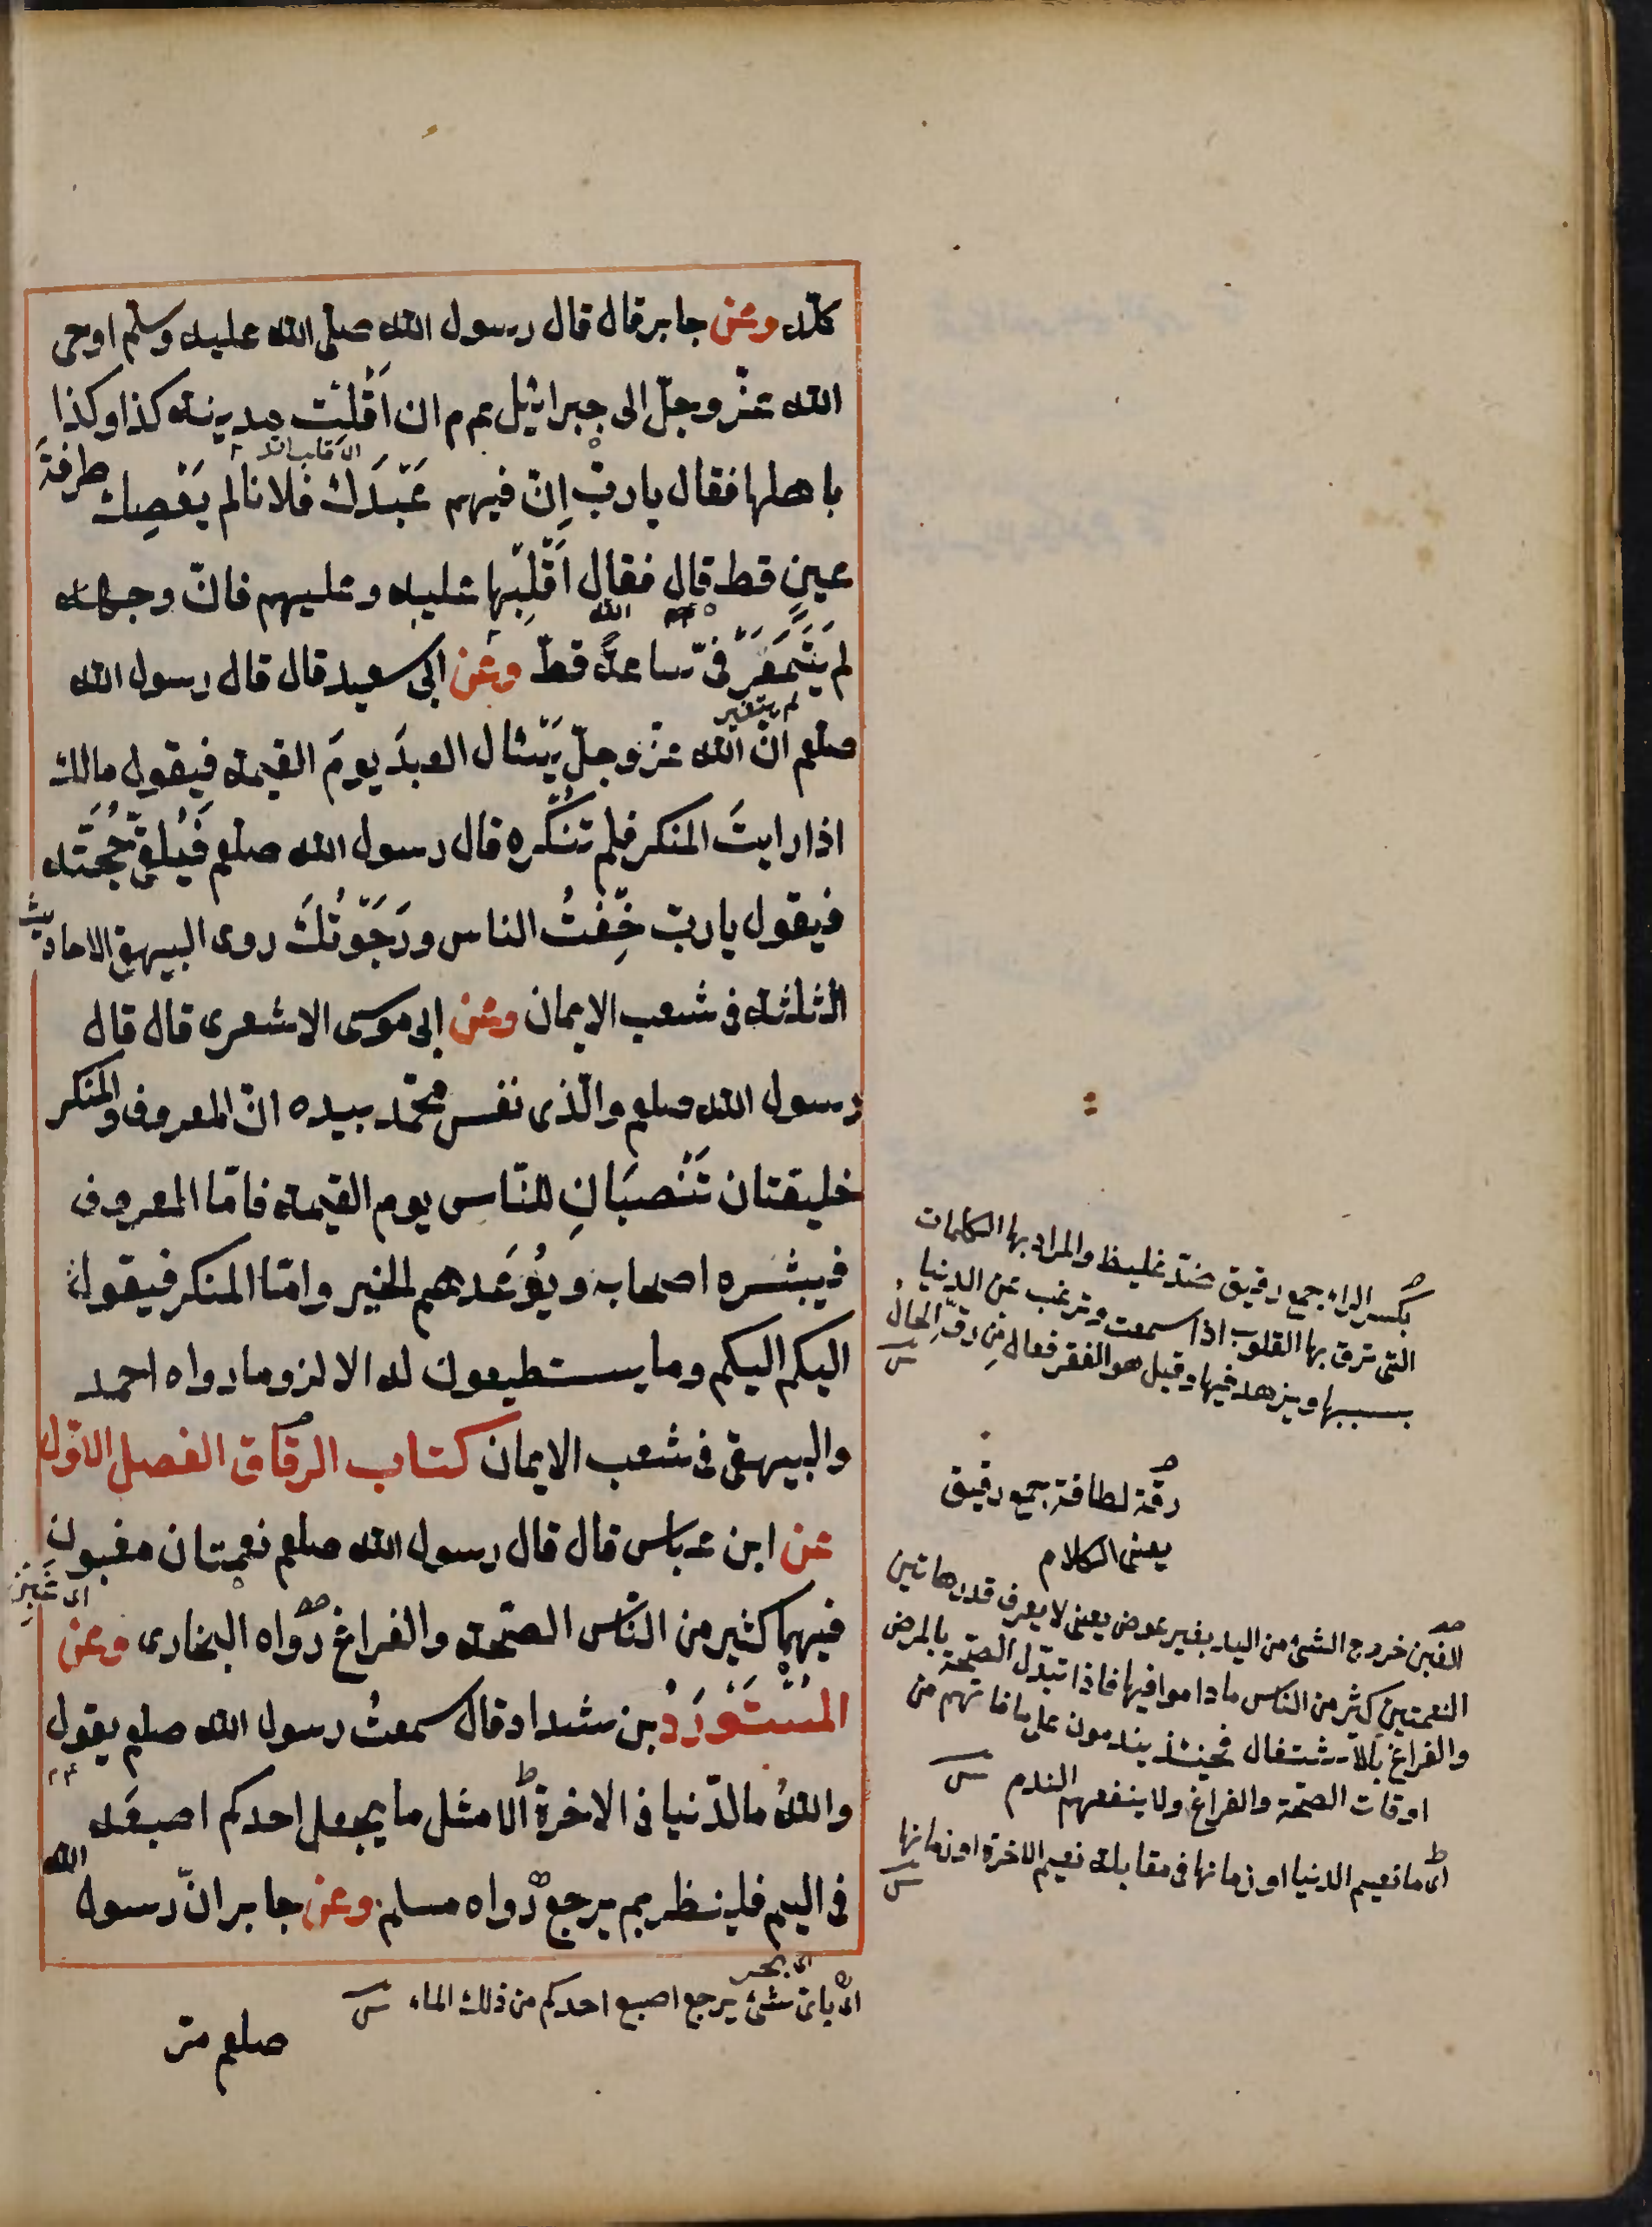 كله وعن جابر قال قال رسول الله صلى الله عليه وسلم اوحى
الله عز وجل الى جبرائيل عم م ان اَقْلِبْ مدينة كذا وكذا
باهلها فقال يا رب اِنّ فيهم عَبْدَكَ فلانا لم يَعْصِك طرفةَ
عينٍ قط قال فقال اَقْلِبْها عليه وعليهم فانّ وجهه
الله
لم يَتَمَعَّرْ فىّ ساعةً قطّ وعن ابى سعيد قال قال رسول الله
لم يتغير
صلعم انّ الله عزّ وجلّ يَسْئال العبدَ يومَ القيمة فيقول مالك
اذا رايتَ المنكر فلم تنكره قال رسول الله صلعم فَيُلَقّى حُجَّتَه
فيقول يا ربّ خِفْتُ الناس ورَجَوْتُكَ روى البيهقى الاحاديث
الثلثة فى شعب الايمان وعن ابى موسى الاشعرى قال قال
رسول الله صلعم والّذى نفس محمّد بيده انّ المعروف والمنكر
خليقتان تَنْصَبَانِ للنّاس يوم القيمة فامّا المعروف
فيبشره اصحابه ويُوْعَدهم الخير وامّا المنكر فيقول
اليكم اليكم وما يستطيعون له الا لزوما رواه احمد
والبيهقى فى شعب الايمان كتاب الرقاق الفصل الاوّل
عن ابن عباس قال قال رسول الله صلعم نعمتان مغبون
فيهما كثير من النّاس الصّحة والفراغ رواه البخارى وعن
المُسْتَوْرَدُ بن شداد قال سمعتُ رسول الله صلعم يقول
واللهُ ما الدّنيا فى الاخرة الا مثل ما يجعل احدكم اصبعَه
فى اليم فلينظر بم يرجع رواه مسلم وعن جابر انّ رسول الله
اى بحر
اى باى شئ يرجع اصبع احدكم من ذلك الماء
صلعم مر
بكسر الراء جمع رقيق ضدّ غليظ والمراد بها الكلمات
التى ترق بها القلوب اذا سمعت وترغب عن الدنيا
بسببها ويزهد فيها وقيل هو الفقر فعال مِن رقّة الحال
رقة لطافة جمع رقيق
يعنى الكلام
الغبن خروج الشئ من اليد بغير عوض يعنى لا يعرف قدر هاتين
النعمتين كثير من الناس ما داموا فيها فاذا تبدّل الصحّة بالمرض
والفراغ بالاشتغال فحينئذ يندمون على ما فاتهم من
اوقات الصحّة والفراغ ولا ينفعهم الندم
اى ما نعيم الدنيا او زمانها فى مقابلة نعيم الاخرة او زمانها